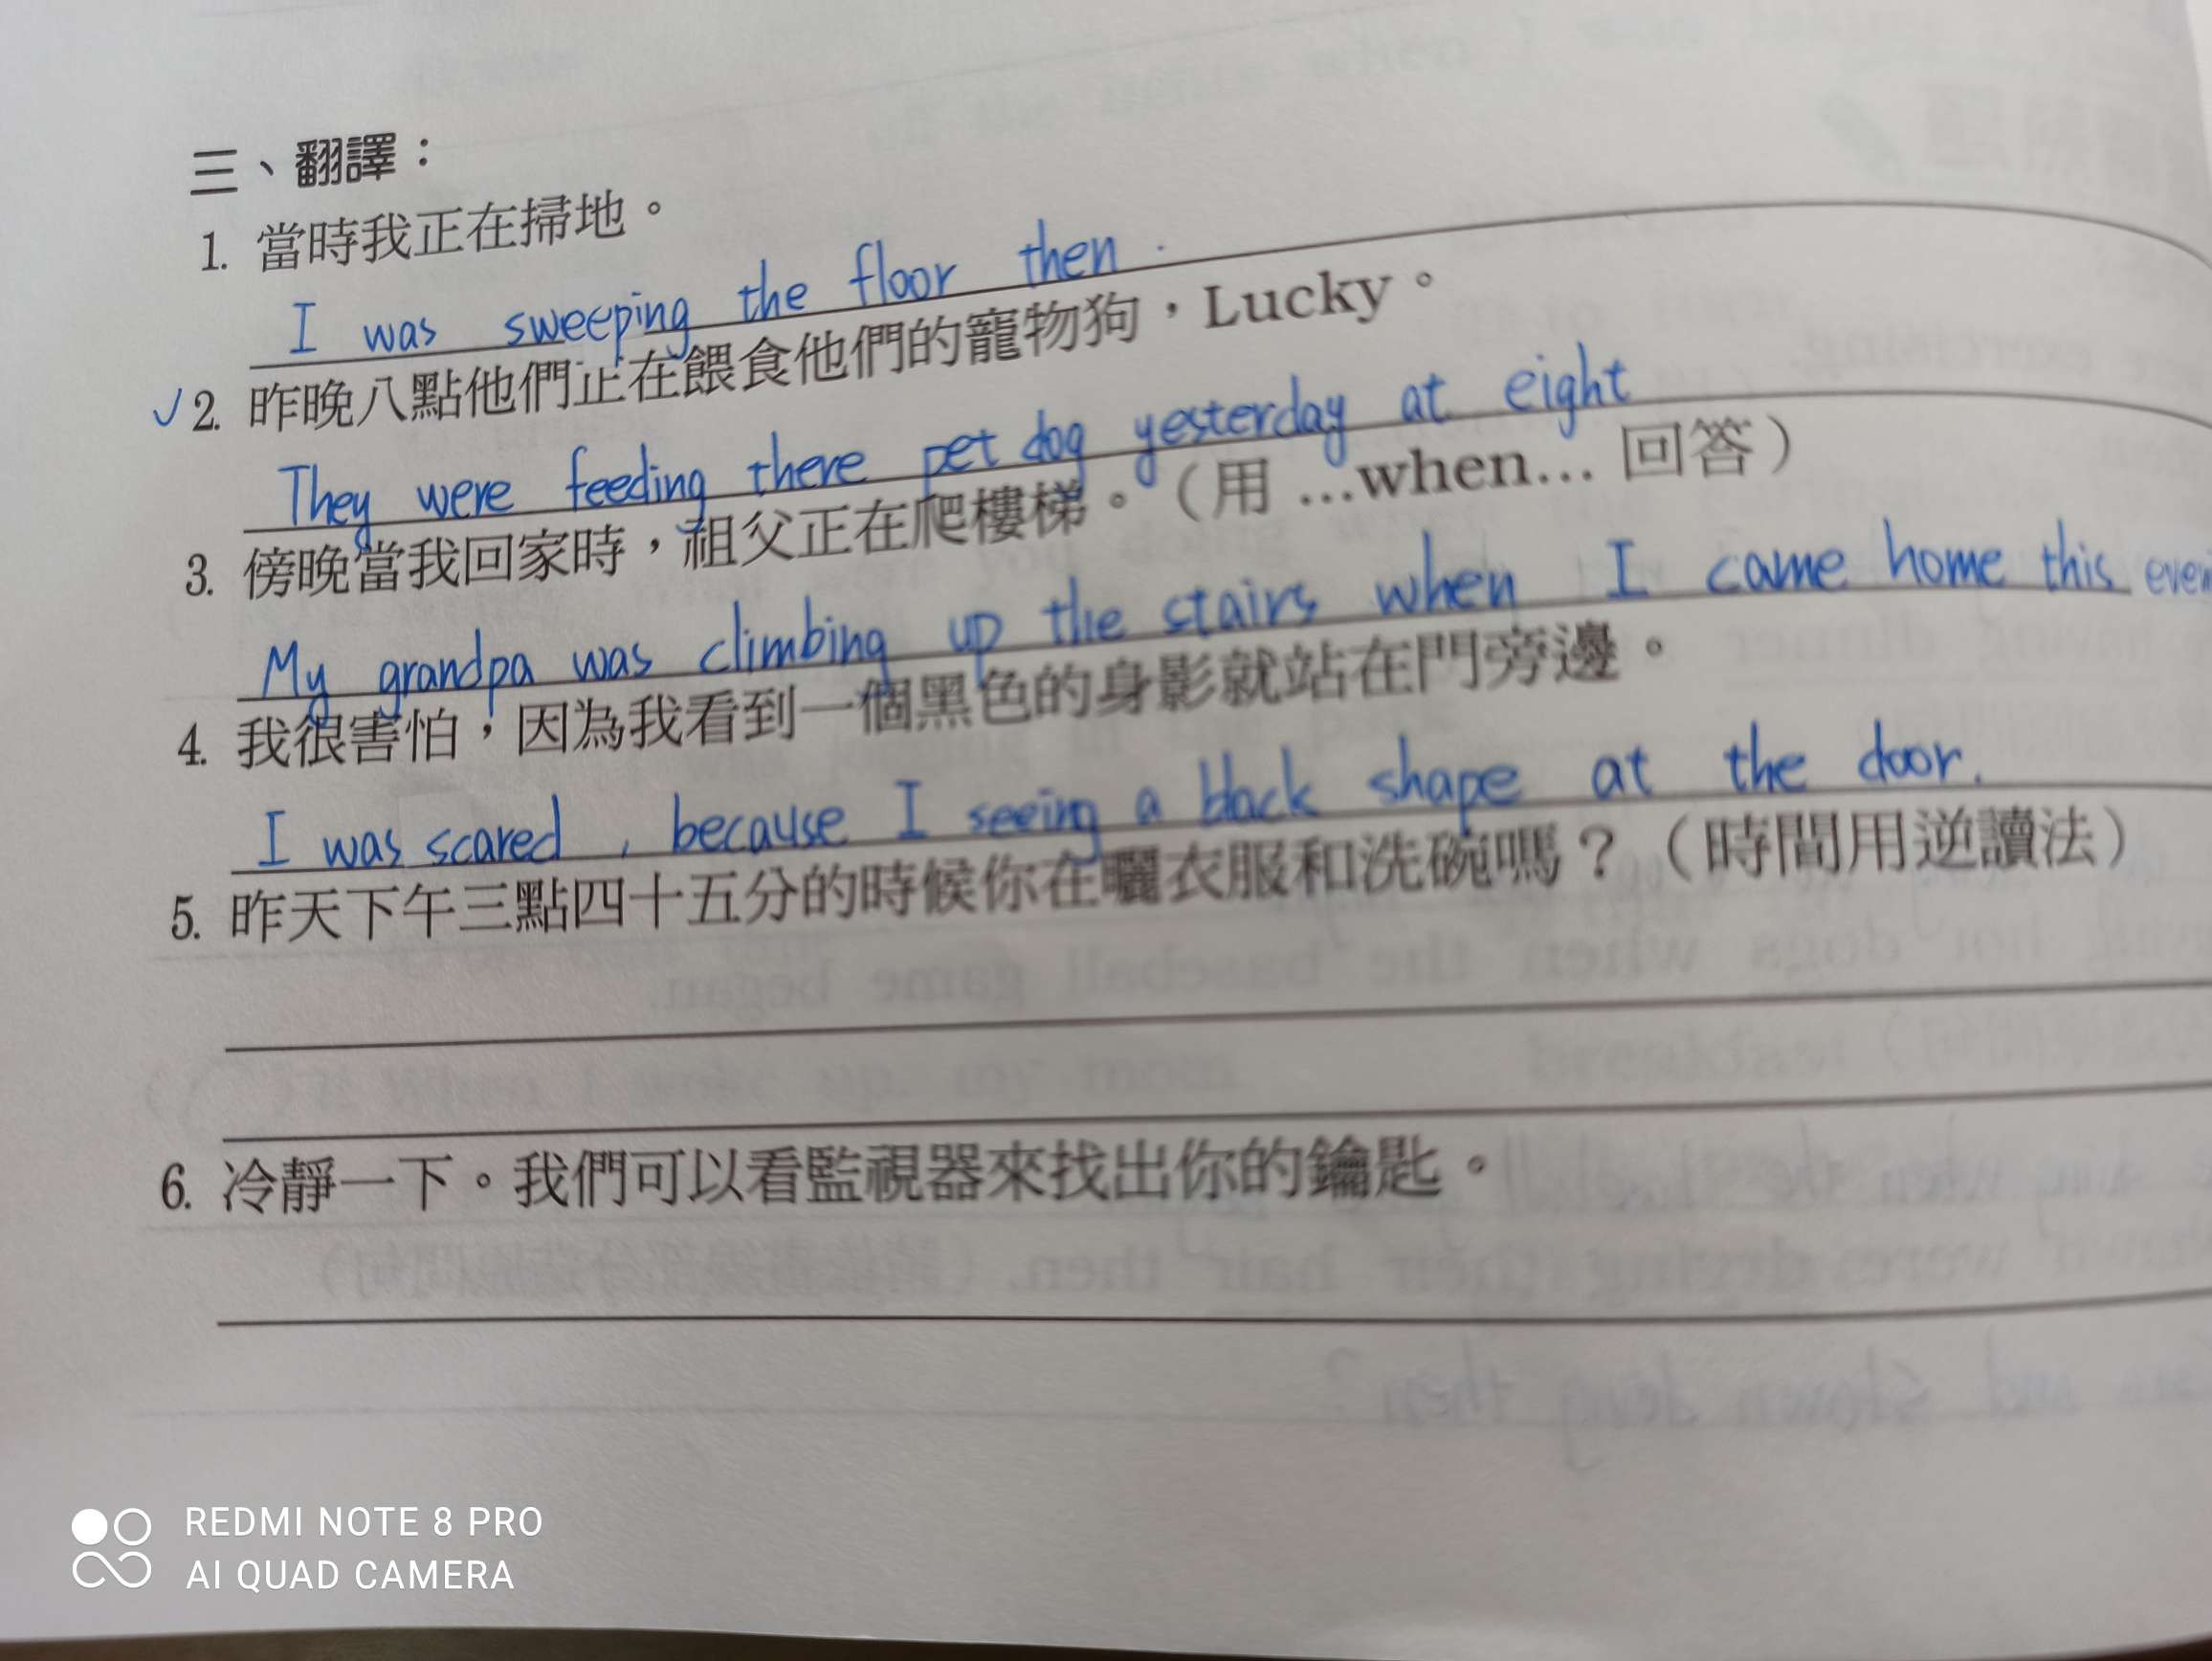 三、翻譯：
1. 當時我正在掃地。
I was sweeping the floor then.
✓2. 昨晚八點他們正在餵食他們的寵物狗，Lucky。
They were feeding there pet dog yesterday at eight
3. 傍晚當我回家時，祖父正在爬樓梯。（用 ...when... 回答）
My grandpa was climbing up the stairs when I came home this even
4. 我很害怕，因為我看到一個黑色的身影就站在門旁邊。
I was scared, because I seeing a black shape at the door.
5. 昨天下午三點四十五分的時候你在曬衣服和洗碗嗎？（時間用逆讀法）
6. 冷靜一下。我們可以看監視器來找出你的鑰匙。
REDMI NOTE 8 PRO
AI QUAD CAMERA